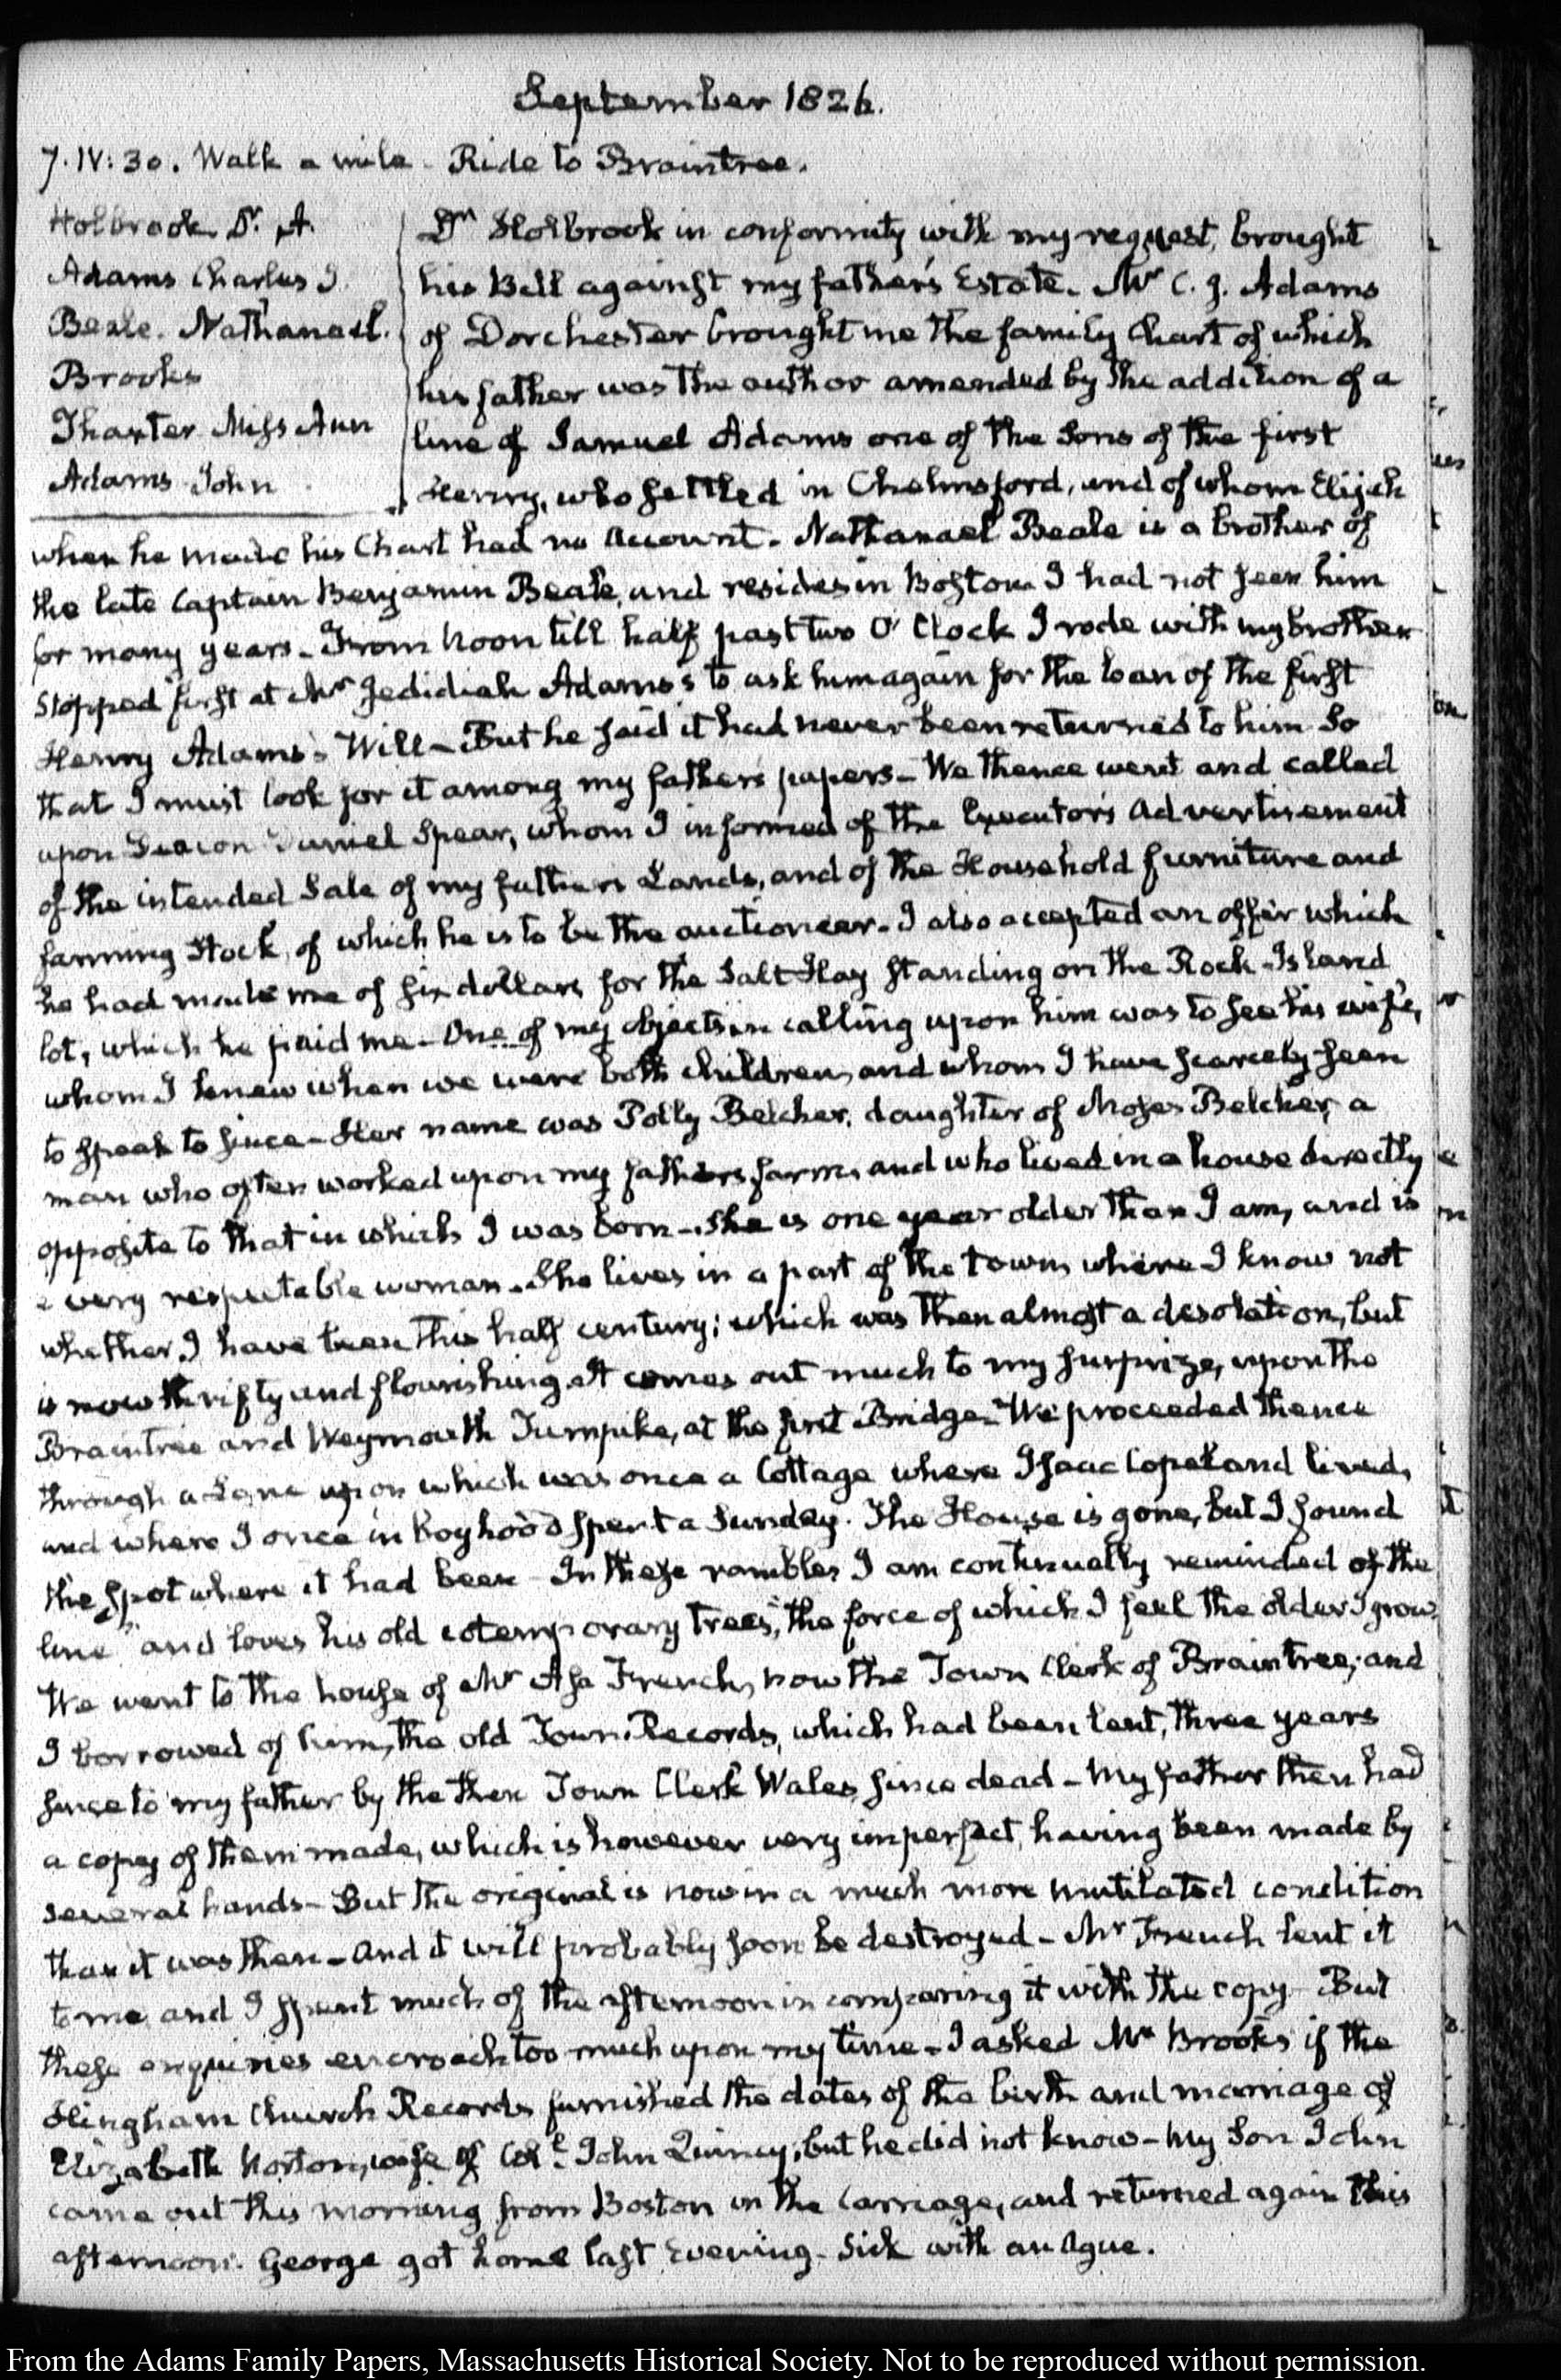 September 1826.
7. IV:30. Walk a mile - Ride to Braintree.
Holbrook. Dr. A.
Adams Charles J.
Beale. Nathanael.
Brooks
Thaxter Miss Ann
Adams John
Dr Holbrook in conformity with my request, brought
his Bill against my father's Estate. Mr C. J. Adams
of Dorchester brought me the family Chart of which
his father was the author amended by the addition of a
line of Samuel Adams one of the Sons of the first
Henry, who settled in Chelmsford, and of whom Elijah
when he made his Chart had no account. Nathanael Beale is a brother of
the late Captain Benjamin Beale, and resides in Boston I had not seen him
for many years - From Noon till half past two O' Clock I rode with my brother
stopped first at Mr Jedidiah Adams's to ask him again for the loan of the first
Henry Adams's Will - But he said it had never been returned to him So
that I must look for it among my father's papers - We thence went and called
upon Deacon Daniel Spear, whom I informed of the Executors advertisement
of the intended Sale of my fathers Lands, and of the Household furniture and
farming Stock, of which he is to be the auctioneer. I also accepted an offer which
he had made me of six dollars for the Salt Hay standing on the Rock-Island
lot, which he paid me - One of my objects in calling upon him was to see his wife,
whom I knew when we were both children, and whom I have scarcely seen
to speak to since - Her name was Polly Belcher, daughter of Moses Belcher, a
man who often worked upon my fathers farm, and who lived in a house directly
opposite to that in which I was born - She is one year older than I am, and is
a very respectable woman. She lives in a part of the town where I know not
whether I have been this half century; which was then almost a desolation, but
is now thrifty and flourishing. It comes out much to my surprize, upon the
Braintree and Weymouth Turnpike, at the first Bridge - We proceeded thence
through a Lane upon which was once a Cottage where Isaac Copeland lived,
and where I once in boyhood spent a Sunday. The House is gone, but I found
the spot where it had been - In these rambles I am continually reminded of the
line "and loves his old cotemporary trees", the force of which I feel the older I grow.
We went to the house of Mr Asa French, now the Town Clerk of Braintree; and
I borrowed of him, the old Town Records, which had been lent, three years
since to my father by the then Town Clerk Wales, since dead - My father then had
a copy of them made, which is however very imperfect, having been made by
several hands - But the original is now in a much more mutilated condition
than it was then - and it will probably soon be destroyed - Mr French lent it
to me, and I spent much of the afternoon in comparing it with the copy - But
these enquiries encroach too much upon my time - I asked Mr Brooks if the
Hingham Church Records furnished the dates of the birth and marriage of
Elizabeth Norton, wife of Col. John Quincy, but he did not know - My Son John
came out this morning from Boston in the Carriage, and returned again this
afternoon. George got home last Evening - Sick with an Ague.
From the Adams Family Papers, Massachusetts Historical Society. Not to be reproduced without permission.